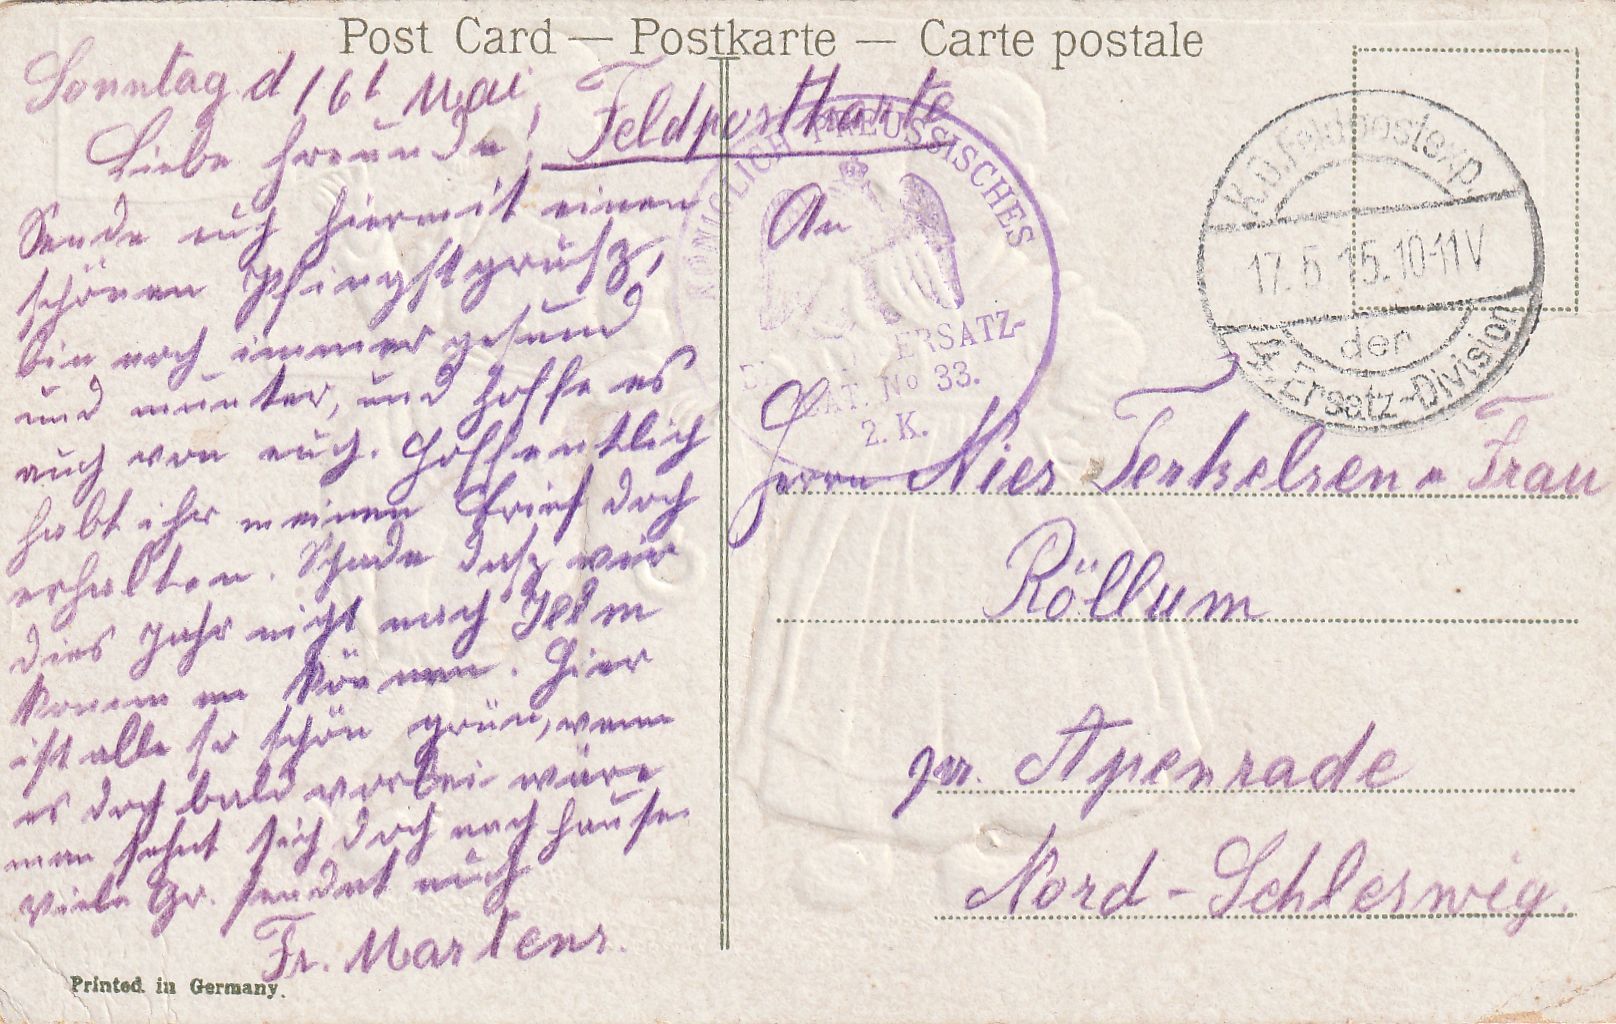 Post Card — Postkarte — Carte postale
Sonntag d 16t Mai
Feldpostkarte
Liebe Freunde!
Sende euch hiermit einen
schönen Pfingstgrusz,
bin noch immer gesund
und munter, und hoffe es
auch von euch. Hoffentlich
habt ihr meinen Brief doch
erhalten. Schade dasz wir
dies Jahr nicht nach
kommen können. Hier
ist alle so schön grün, wenn
es doch bald vorbei wäre
man sehnt sich doch nach Hause.
Viele Gr. sendet euch
Fr. Martens.
Printed in Germany.
An
Herrn Nies Terkelsen u Frau
Röllum
pr. Apenrade
Nord-Schleswig.
KÖNIGLICH PREUSSISCHES
ERSATZ-
BAT. No 33.
2. K.
K.D. Feldpostexp.
17. 5. 15. 10-11V
der
4. Ersatz-Division